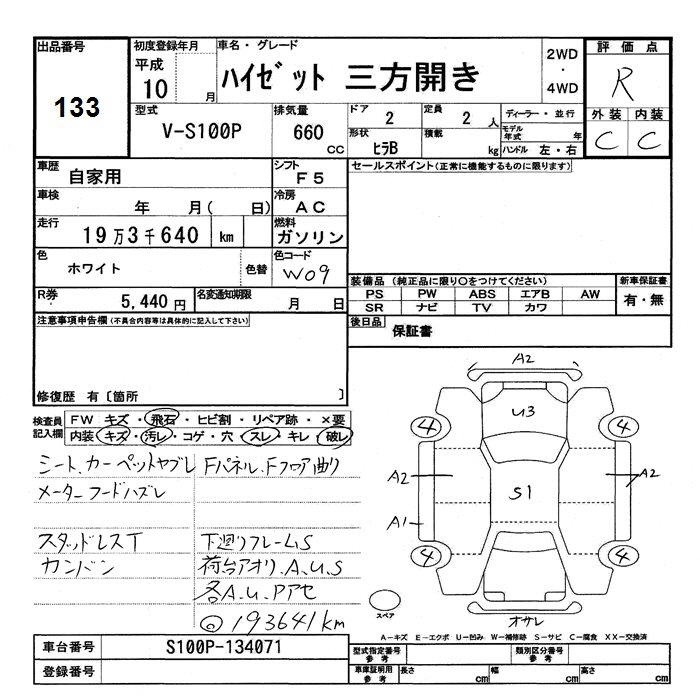 出品番号 初度登録年月 車名・グレード 2WD・4WD 評価点
133 平成10月 ハイゼット 三方開き R
型式 排気量 ドア 定員 ディーラー・並行 外装 内装
V-S100P 660CC 2 2人 モデル年式 年 C C
形状 積載 ハンドル 左・右
ヒラB kg
車歴 シフト セールスポイント(正常に機能するものに限ります)
自家用 F5
車検 冷房
年 月( 日) AC
走行 燃料
19万3千640 km ガソリン
色 色コード
ホワイト 色替 W09
装備品 (純正品に限り○をつけてください) 新車保証書
PS PW ABS エアB AW 有・無
SR ナビ TV カワ
R券 名変通知期限
5,440円 月 日
後日品 保証書
注意事項申告欄(不具合内容等は具体的に記入して下さい)
修復歴 有〔箇所 〕
検査員記入欄 FW キズ・飛石・ヒビ割・リペア跡・×要
内装 キズ・汚レ・コゲ・穴・スレ・キレ・破レ
シート、カーペットヤブレ Fパネル、Fフロア曲り
メーターフードハズレ
スタッドレスT 下廻りフレームS
カンバン 荷台アオリ、A、U、S
各A、U、Pアセ
◎193641km
A2
U3
4 4
A2 A2
S1
A1
4 4
スペア
オサレ
A-キズ E-エクボ U-凹み W-補修跡 S-サビ C-腐食 XX-交換済
車台番号 S100P-134071 型式指定番号参考 類別区分番号参考
登録番号 車庫証明用参考 長さ cm 幅 cm 高さ cm